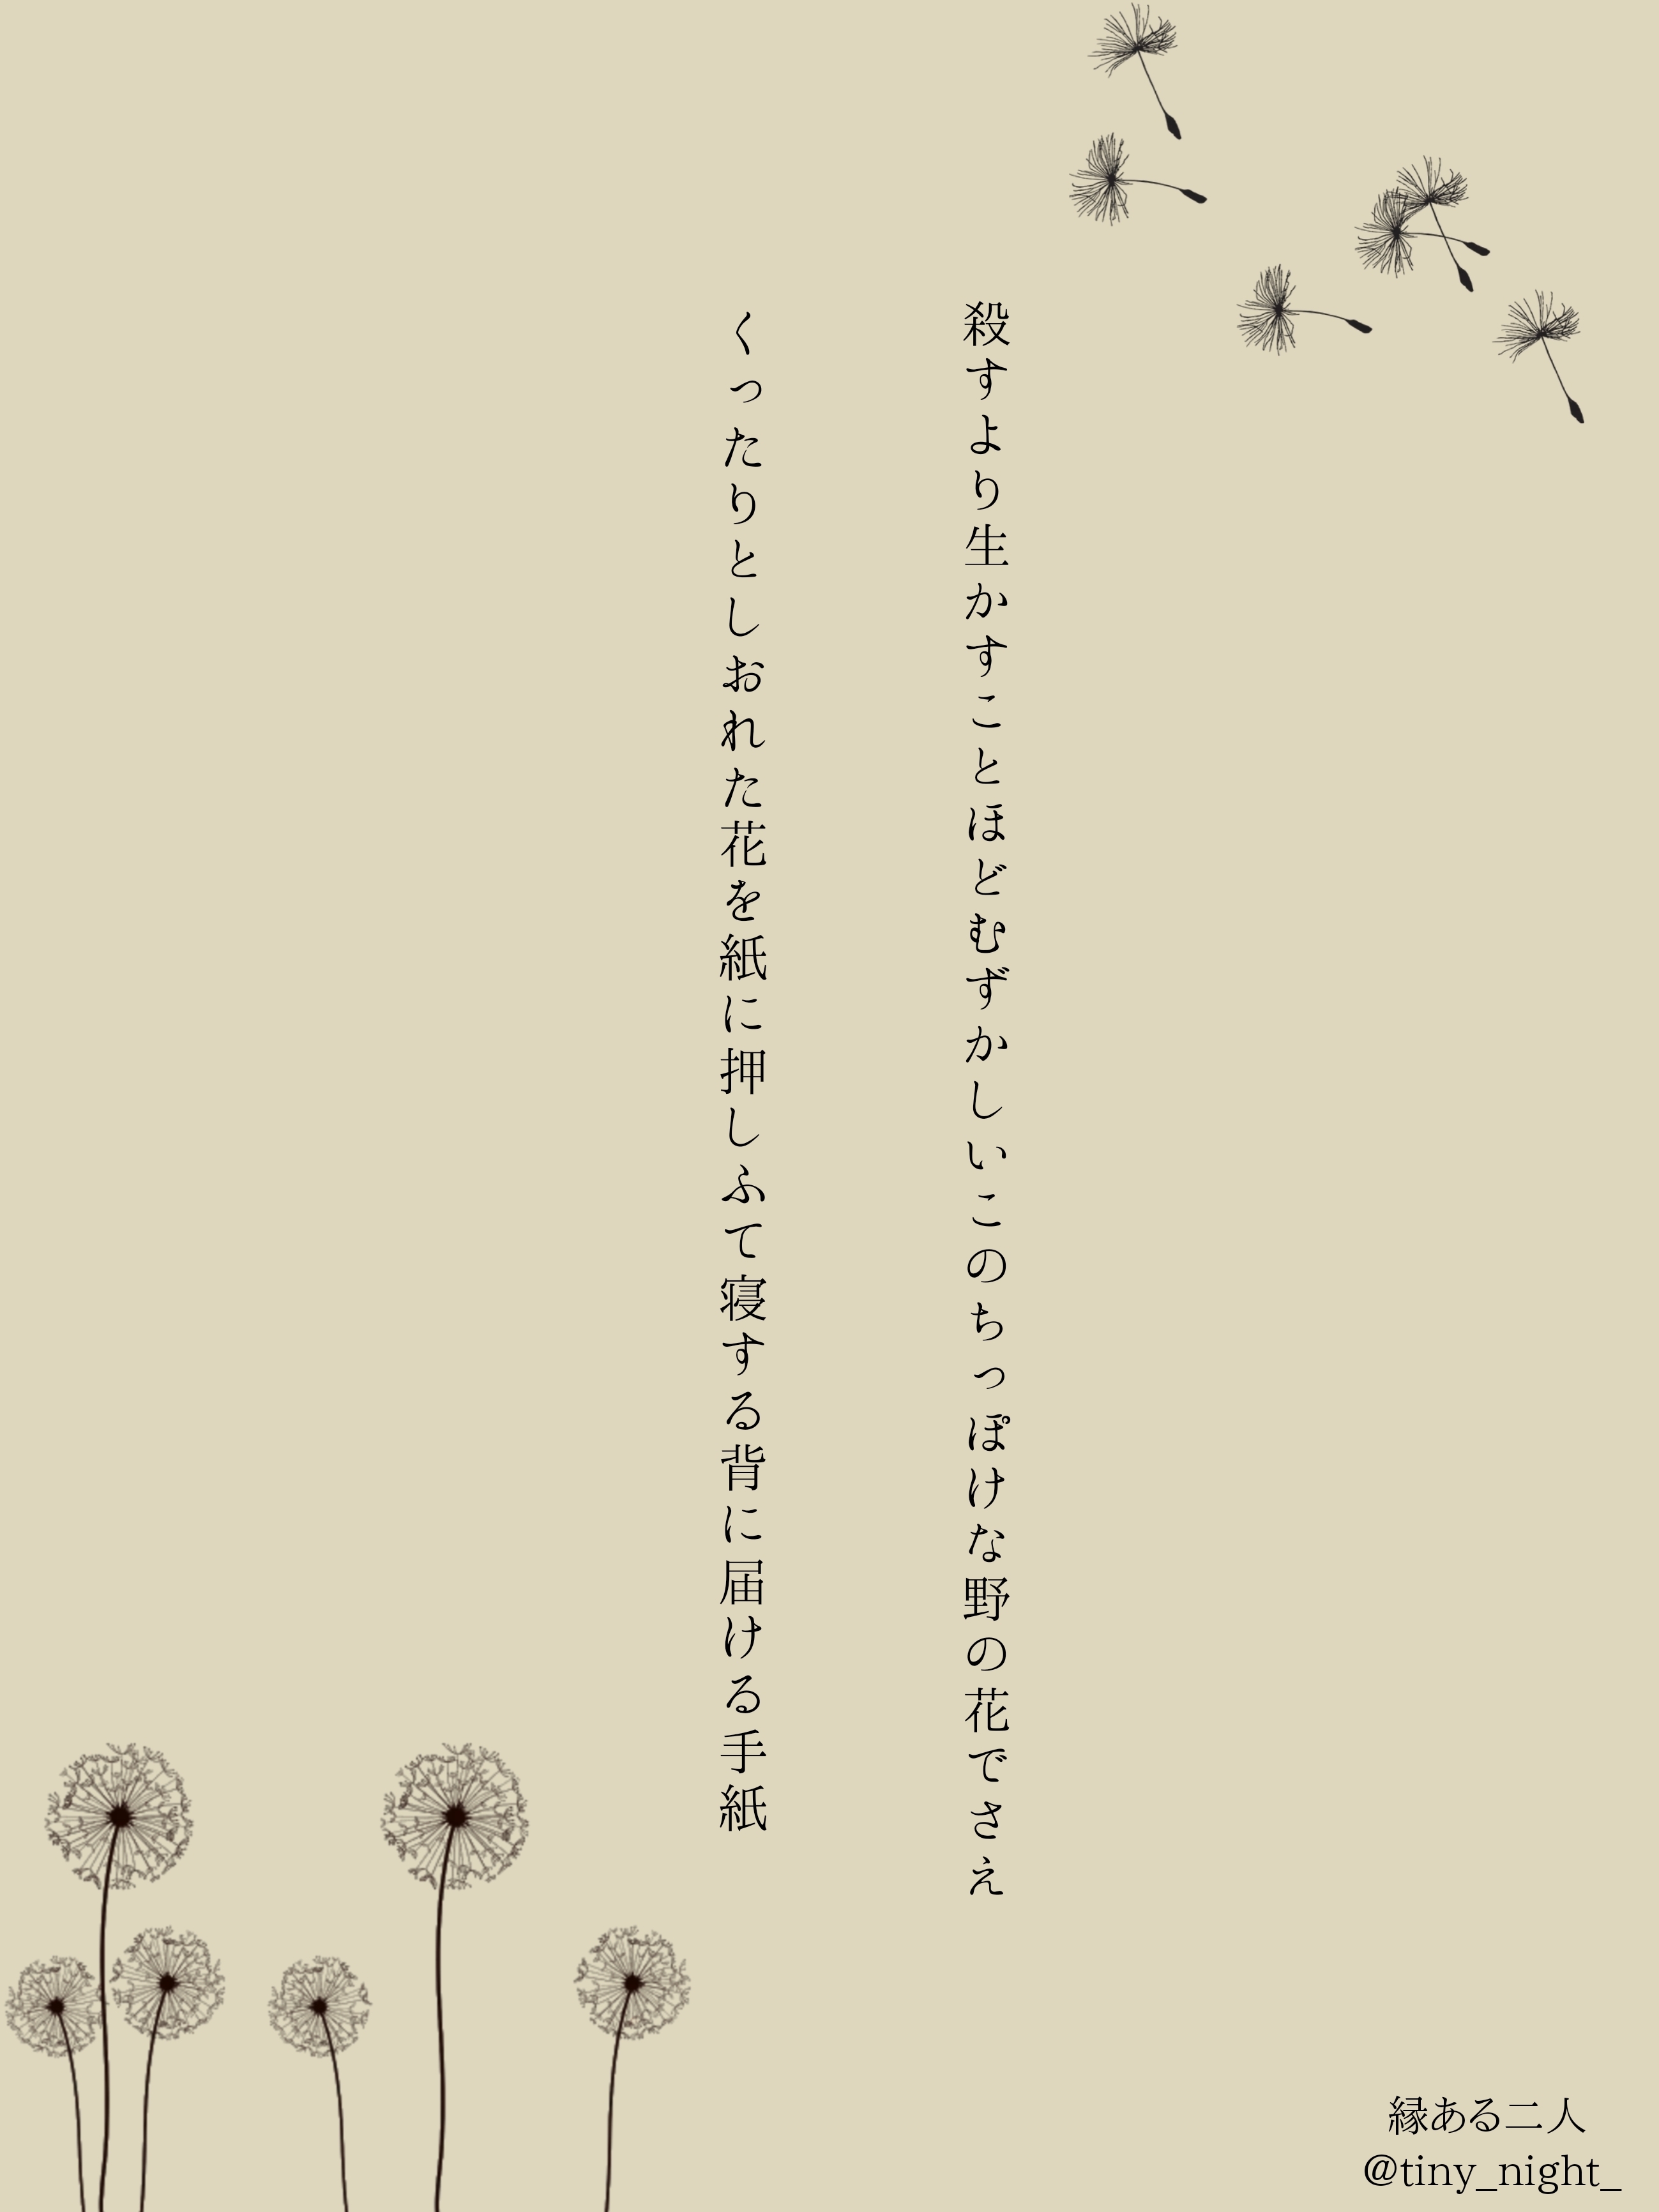 殺すより生かすことほどむずかしいこのちっぽけな野の花でさえ
くったりとしおれた花を紙に押しふて寝する背に届ける手紙
縁ある二人
@tiny_night_